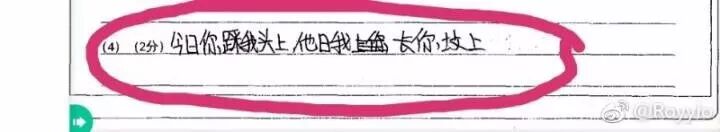 (4) (2分) 今日你踩我头上,他日我长你坟上
@Royylo